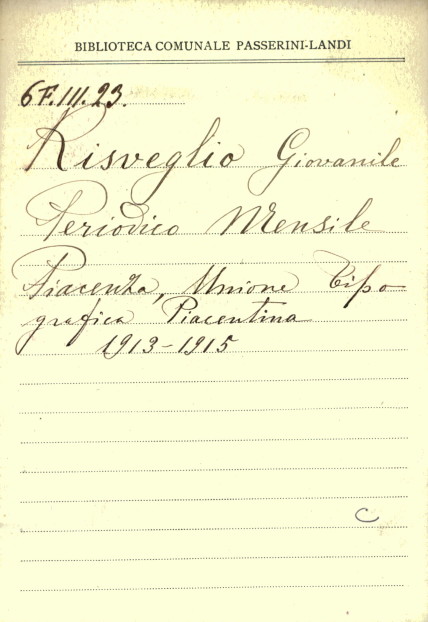 BIBLIOTECA COMUNALE PASSERINI-LANDI
6F.III.23.
Risveglio Giovanile
Periodico Mensile
Piacenza, Unione Tipo
grafica Piacentina
1913-1915
C